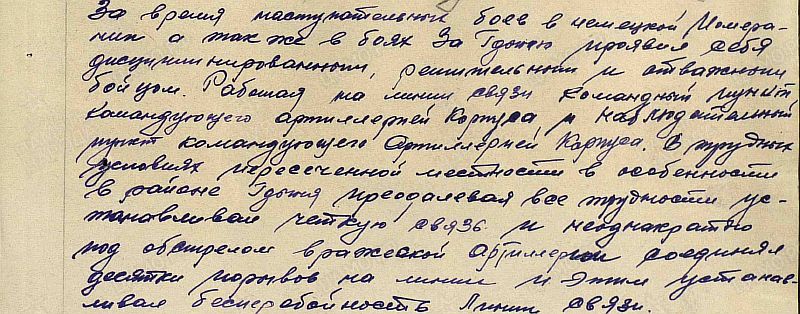 За время наступательных боев в немецкой Помера-
нии а так же в боях За Гдыню проявил себя
дисциплинированным, решительным и отважным
бойцом. Работая на линии связи командный пункт
командующего артиллерией Корпуса и наблюдательный
пункт командующего Артиллерией Карпуса. В трудных
условиях пересеченной местности в особенности
в районе Гдыня преодалевая все трудности ус-
танавливал четкую связь и неоднакратно
под обстрелом вражеской артиллерии соединял
десятки порывов на линии и этим устанав-
ливал бесперебойность Линии связи.